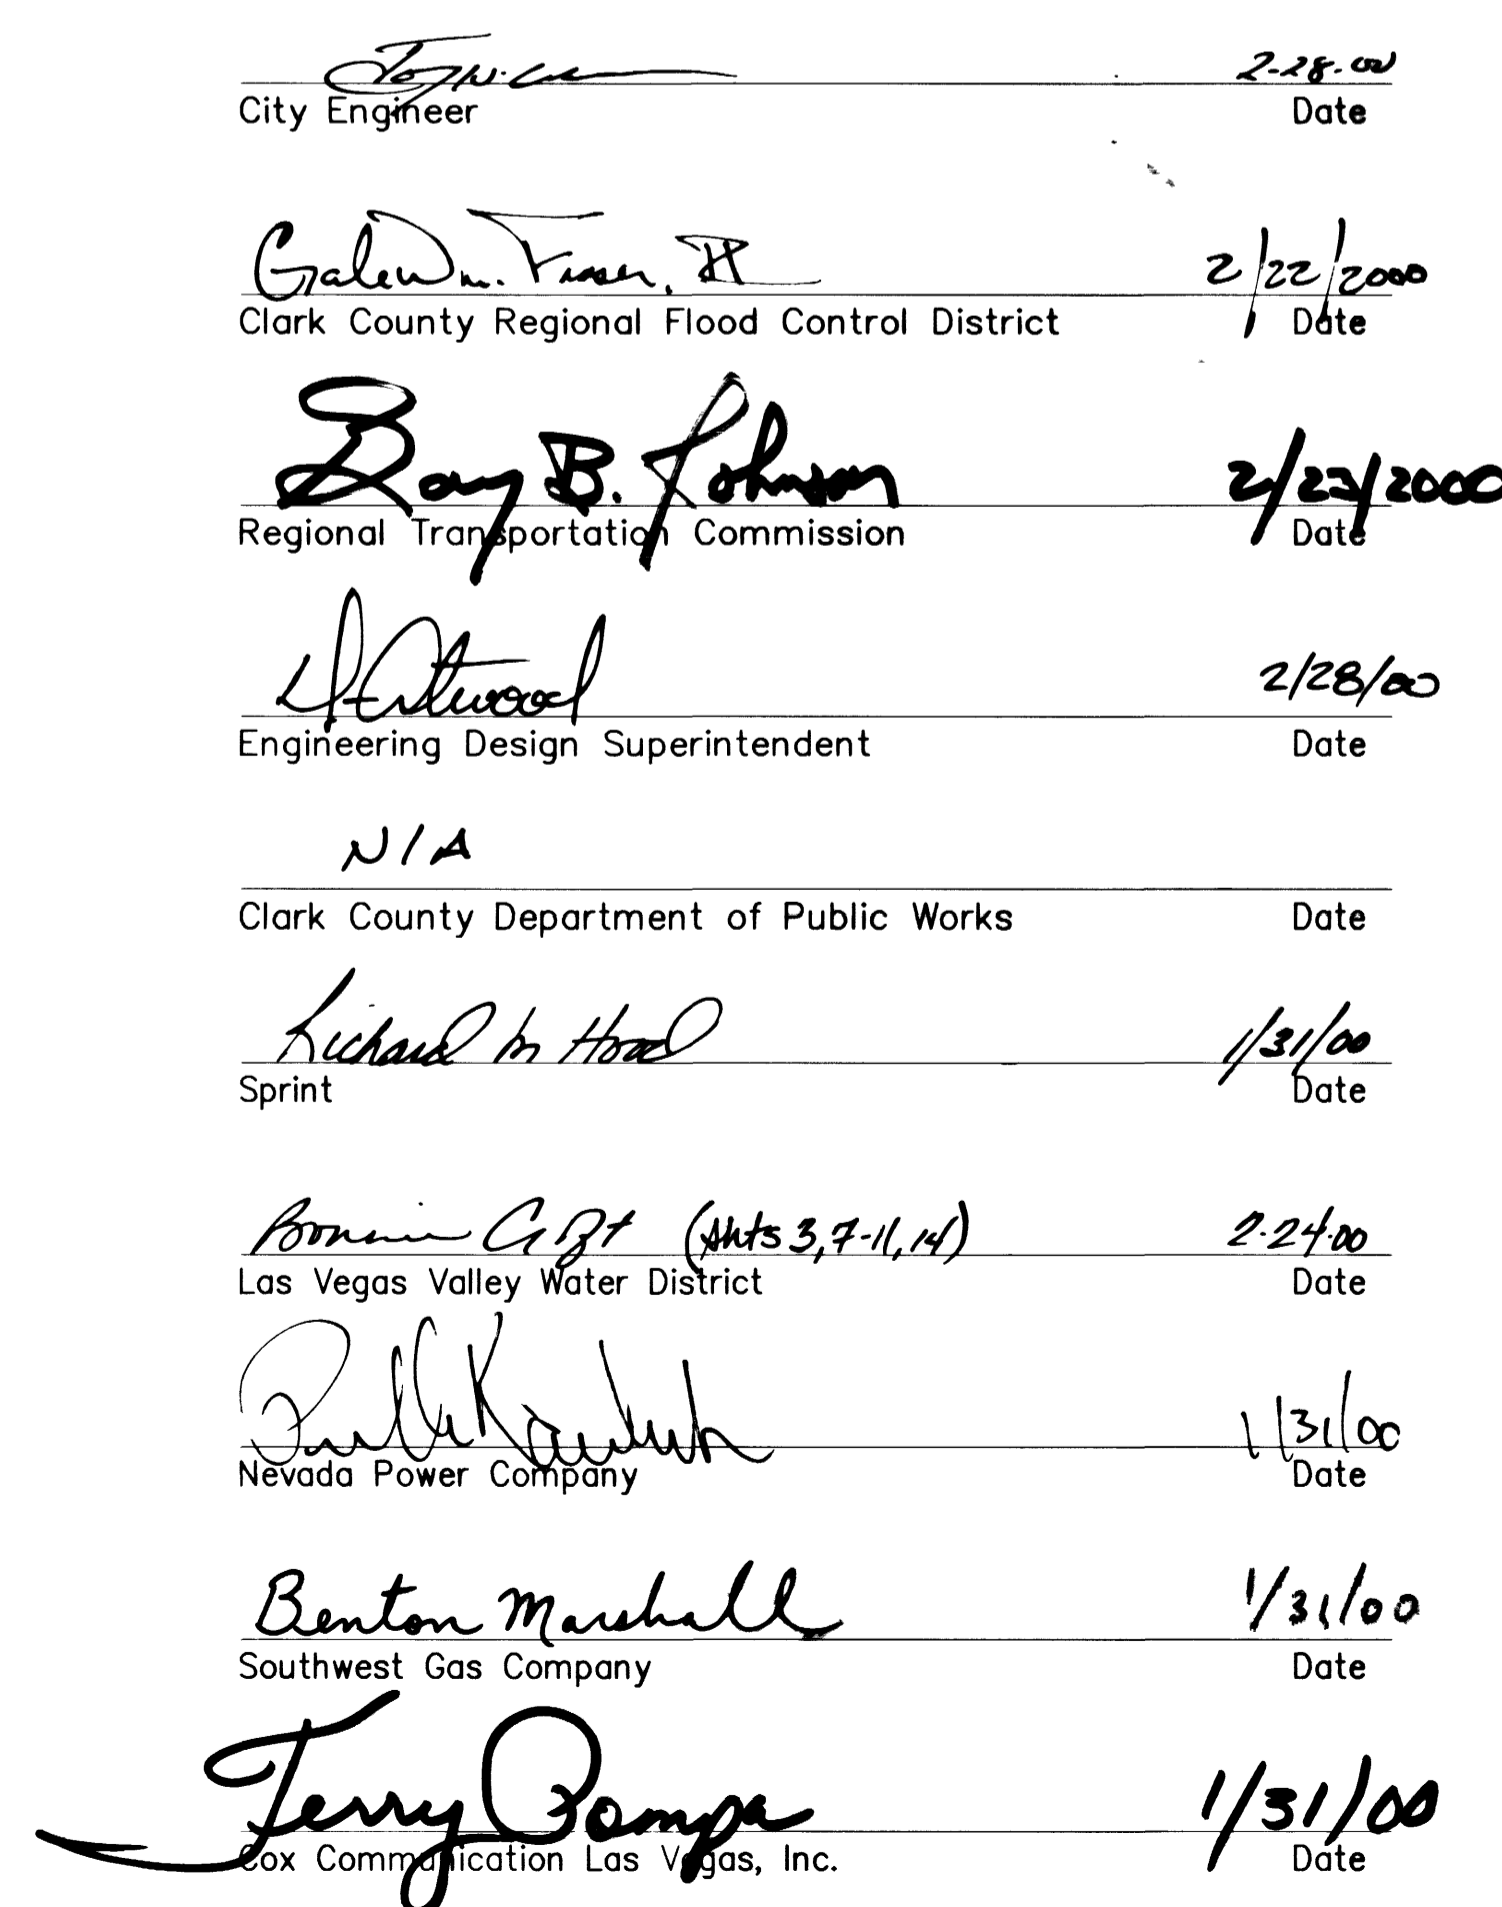 2-28-00
City Engineer Date
Galen M. Fraser, II 2/22/2000
Clark County Regional Flood Control District Date
B. Johnson 2/23/2000
Regional Transportation Commission Date
Atwood 2/28/00
Engineering Design Superintendent Date
N/A
Clark County Department of Public Works Date
Richard M Hood 1/31/00
Sprint Date
Bonnie (shts 3,7-11,14) 2-24-00
Las Vegas Valley Water District Date
1/31/00
Nevada Power Company Date
Benton Marshall 1/31/00
Southwest Gas Company Date
Terry Pompa 1/31/00
Cox Communication Las Vegas, Inc. Date